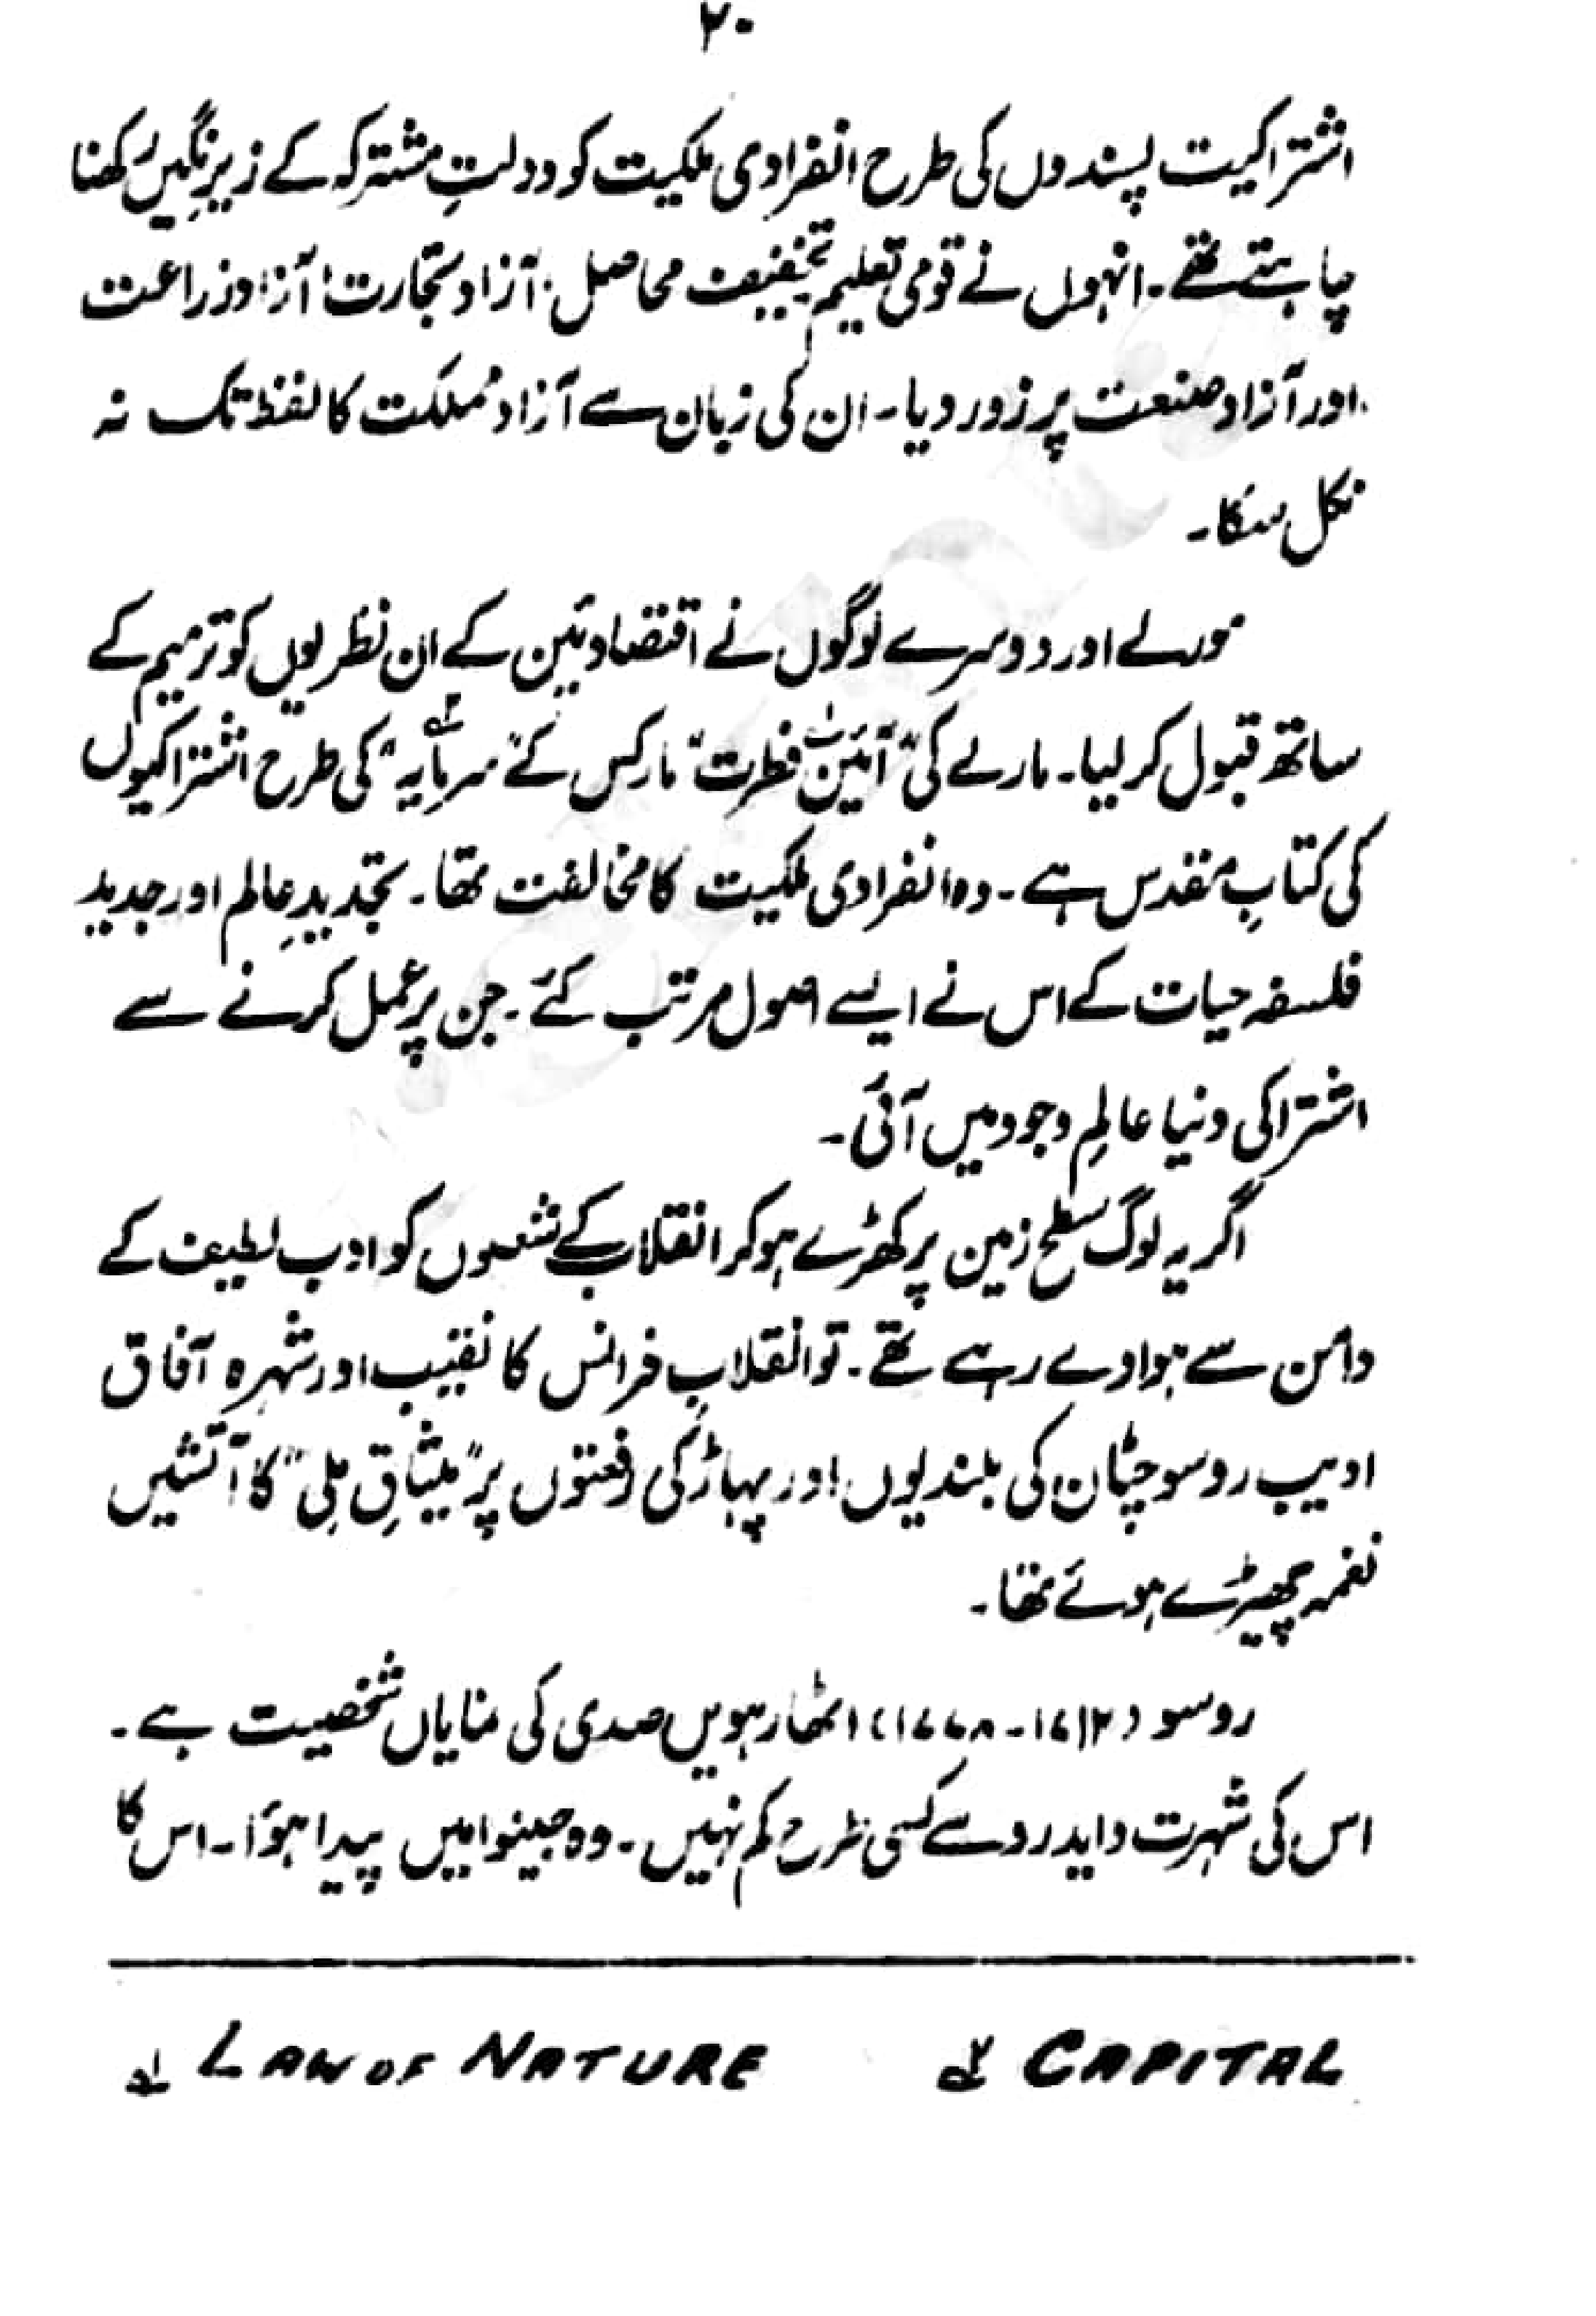 ۲۰
اشتراکیت پسندوں کی طرح انفرادی ملکیت کو دولتِ مشترکہ کے زیرِ نگیں رکھنا
چاہتے تھے۔ انہوں نے قومی تعلیم تخفیف محاصل، آزاد تجارت، آزاد زراعت
اور آزاد صنعت پر زور دیا۔ ان کی زبان سے آزاد مُملکت کا لفظ تک نہ
نکل سکا۔
مورلے اور دوسرے لوگوں نے اقتصادیئین کے ان نظریوں کو ترمیم کے
ساتھ قبول کر لیا۔ مارلے کی "آئینِ فطرت" مارکس کے "سرمایہ" کی طرح اشتراکیوں
کی کتابِ مقدس ہے۔ وہ انفرادی ملکیت کا مخالف تھا۔ تجدیدِ عالم اور جدید
فلسفہ حیات کے اس نے ایسے اصول مرتب کئے۔ جن پر عمل کرنے سے
اشتراکی دنیا عالمِ وجود میں آئی۔
اگر یہ لوگ سطح زمین پر کھڑے ہو کر انقلاب کے شعلوں کو ادب لطیف کے
دامن سے ہوا دے رہے تھے۔ تو انقلابِ فرانس کا نقیب اور شہرہ آفاق
ادیب روسو چٹان کی بلندیوں اور پہاڑ کی رفعتوں پر "میثاقِ ملی" کا آتشیں
نغمہ چھیڑے ہوئے تھا۔
روسو (۱۷۱۲۔۱۷۷۸) اٹھارہویں صدی کی نمایاں شخصیت ہے۔
اس کی شہرت دایدرو سے کسی طرح کم نہیں۔ وہ جینوا میں پیدا ہؤا۔ اس کا
۱؎ LAW OF NATURE ۲؎ CAPITAL